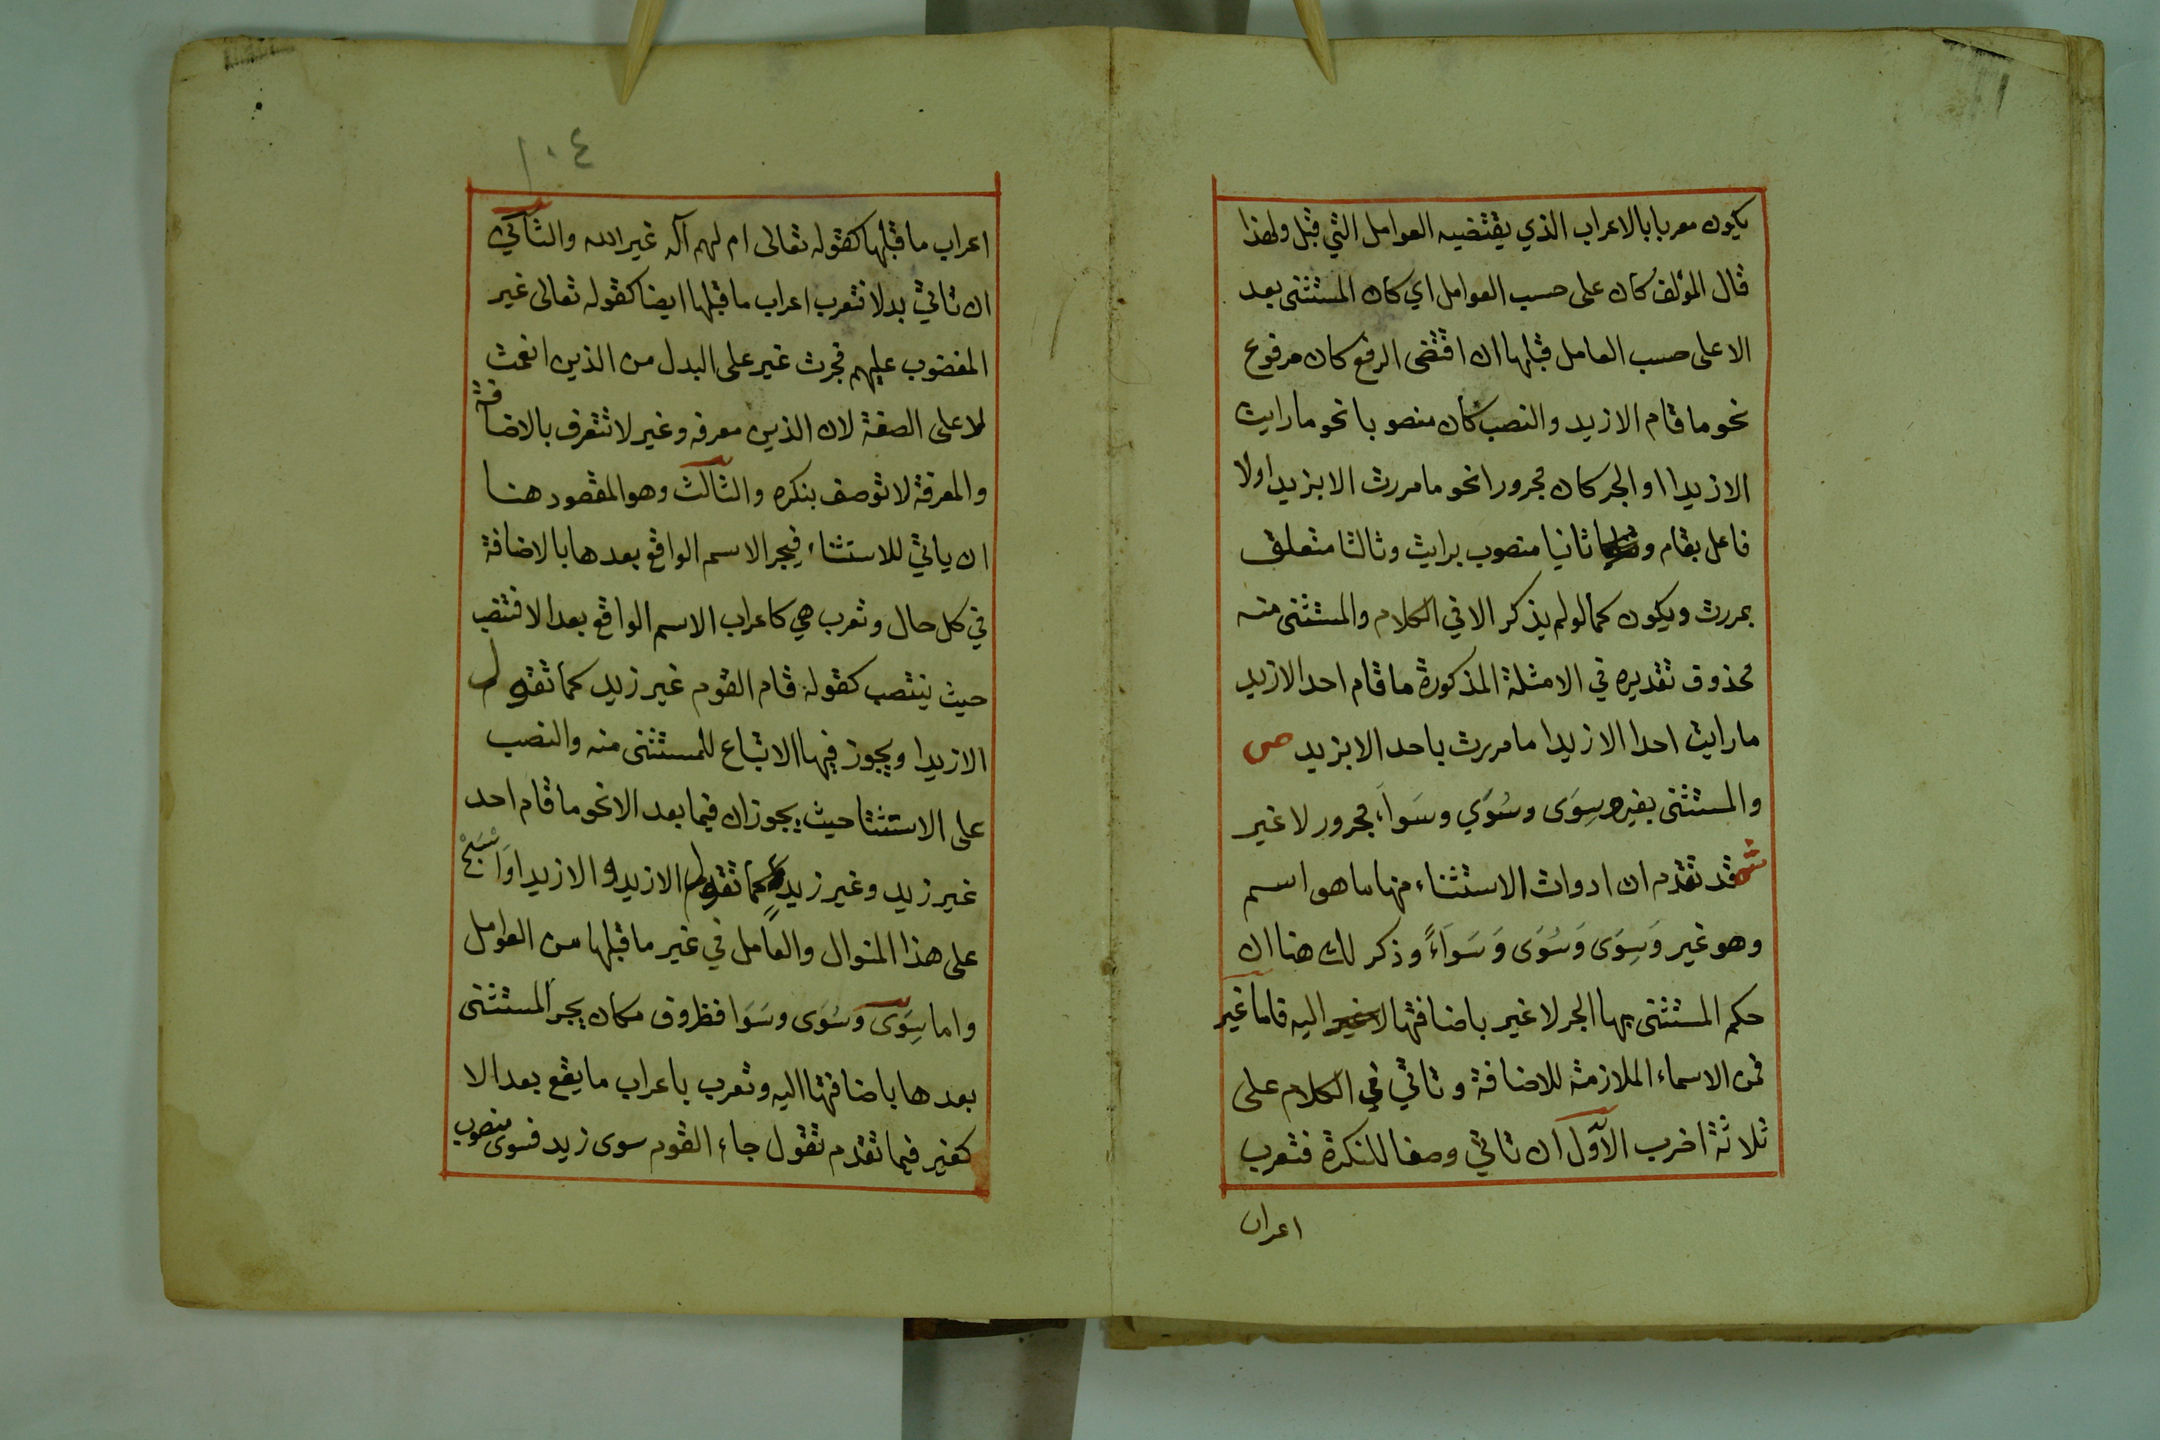 يكون معربا بالاعراب الذي يقتضيه العوامل التي قبل ولهذا
قال المؤلف كان على حسب العوامل اي كان المستثنى بعد
الا على حسب العامل قبلها ان اقتضى الرفع كان مرفوع
نحو ما قام الا زيد والنصب كان منصوبا نحو ما رايت
الا زيدا او الجر كان مجرورا نحو ما مررت الا بزيد اولا
فاعل بقام و ثانيا منصوب برايت وثالثا متعلق
بمررت ويكون كما لو لم يذكر الا في الكلام والمستثنى منه
محذوف تقديره في الامثلة المذكورة ما قام احد الا زيد
ما رايت احدا الا زيدا ما مررت باحد الا بزيد ص
والمستثنى بغير وسِوَى وسُوَي وسَوَاَء مجرور لا غير
ش قد تقدم ان ادوات الاستثناء منها ما هو اسم
وهو غير وَسِوَى وَسُوَى وَسَوَاءً وذكر لك هنا ان
حكم المستثنى بها الجر لا غير باضافتها اليه فاما غير
فمن الاسماء الملازمة للاضافة وتاتي في الكلام على
ثلاثة اضرب الاول ان تاتي وصفا للنكرة فتعرب
اعراب
١٠٤
اعراب ما قبلها كقوله تعالى ام لهم آله غير الله والثاني
ان تاتي بدلا فتعرب اعراب ما قبلها ايضا كقوله تعالى غير
المغضوب عليهم فجرت غير على البدل من الذين انعمت
لا على الصفة لان الذين معرفه وغير لا تتعرف بالاضافة
والمعرفة لا توصف بنكره والثالث وهو المقصود هنا
ان ياتي للاستثناء فيجر الاسم الواقع بعدها بالاضافة
في كل حال وتعرب هي كاعراب الاسم الواقع بعد الا فتنصب
حيث ينتصب كقوله قام القوم غير زيد كما تقول
الا زيدا ويجوز فيها الاتباع للمستثنى منه والنصب
على الاستثنا حيث يجوزان فيما بعد الا نحو ما قام احد
غير زيد وغير زيد كما تقول الا زيد والا زيدا وَانْسَجْ
على هذا المنوال والعامل في غير ما قبلها من العوامل
واما سِوَى وَسُوَى وسَوَا فظروف مكان يجر المستثنى
بعدها باضافتها اليه وتعرب باعراب ما يقع بعد الا
كغير فيما تقدم تقول جاء القوم سوى زيد فسوى منصوب